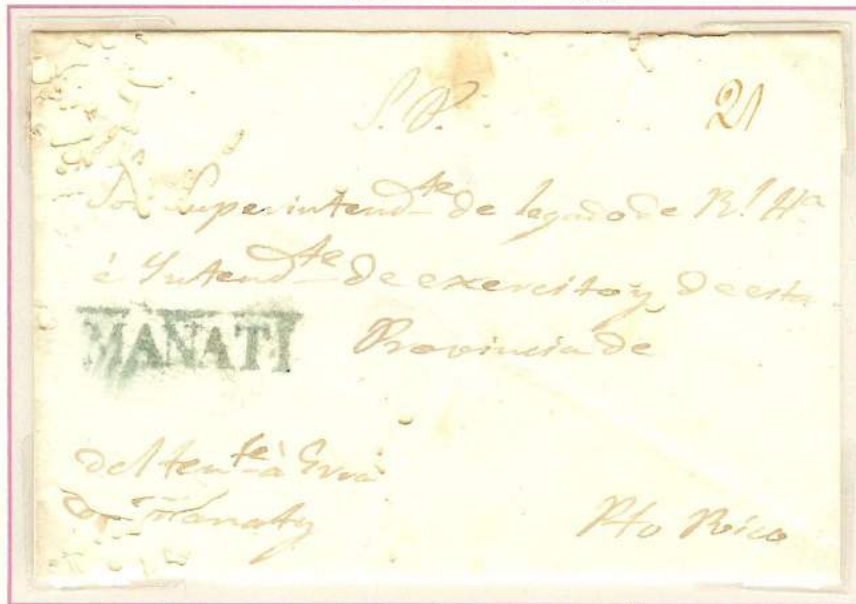 S. N. 21
Sor Superintendte de legado de Rl Ha
è Yntendte de exercito y de esta
MANATI Provincia de
del tente à Grra
de Manaty Pto Rico